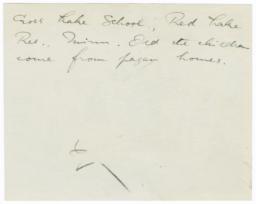 Cross Lake School; Red Lake
Res., Minn. Did the children
come from pagan homes.